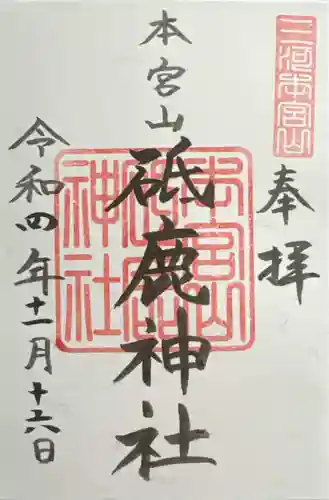 三河本宮山
奉拝
本宮山
砥鹿神社
本宮山
砥鹿
神社
令和四年十一月十六日